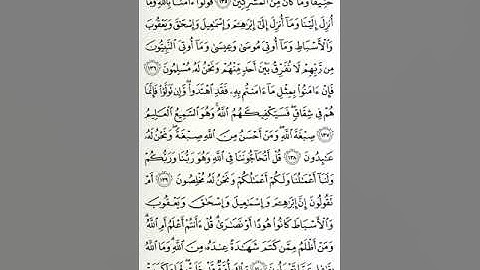 حَنِيفًا وَمَا كَانَ مِنَ ٱلْمُشْرِكِينَ ١٣٥ قُولُوٓا۟ ءَامَنَّا بِٱللَّهِ وَمَآ
أُنزِلَ إِلَيْنَا وَمَآ أُنزِلَ إِلَىٰٓ إِبْرَٰهِـۧمَ وَإِسْمَٰعِيلَ وَإِسْحَٰقَ وَيَعْقُوبَ
وَٱلْأَسْبَاطِ وَمَآ أُوتِىَ مُوسَىٰ وَعِيسَىٰ وَمَآ أُوتِىَ ٱلنَّبِيُّونَ
مِن رَّبِّهِمْ لَا نُفَرِّقُ بَيْنَ أَحَدٍ مِّنْهُمْ وَنَحْنُ لَهُۥ مُسْلِمُونَ ١٣٦
فَإِنْ ءَامَنُوا۟ بِمِثْلِ مَآ ءَامَنتُم بِهِۦ فَقَدِ ٱهْتَدَوا۟ وَّإِن تَوَلَّوْا۟ فَإِنَّمَا
هُمْ فِى شِقَاقٍ فَسَيَكْفِيكَهُمُ ٱللَّهُ وَهُوَ ٱلسَّمِيعُ ٱلْعَلِيمُ
١٣٧ صِبْغَةَ ٱللَّهِ وَمَنْ أَحْسَنُ مِنَ ٱللَّهِ صِبْغَةً وَنَحْنُ لَهُۥ
عَٰبِدُونَ ١٣٨ قُلْ أَتُحَآجُّونَنَا فِى ٱللَّهِ وَهُوَ رَبُّنَا وَرَبُّكُمْ
وَلَنَآ أَعْمَٰلُنَا وَلَكُمْ أَعْمَٰلُكُمْ وَنَحْنُ لَهُۥ مُخْلِصُونَ ١٣٩ أَمْ
تَقُولُونَ إِنَّ إِبْرَٰهِـۧمَ وَإِسْمَٰعِيلَ وَإِسْحَٰقَ وَيَعْقُوبَ
وَٱلْأَسْبَاطَ كَانُوا۟ هُودًا أَوْ نَصَٰرَىٰ قُلْ ءَأَنتُمْ أَعْلَمُ أَمِ ٱللَّهُ
وَمَنْ أَظْلَمُ مِمَّن كَتَمَ شَهَٰدَةً عِندَهُۥ مِنَ ٱللَّهِ وَمَا ٱللَّهُ